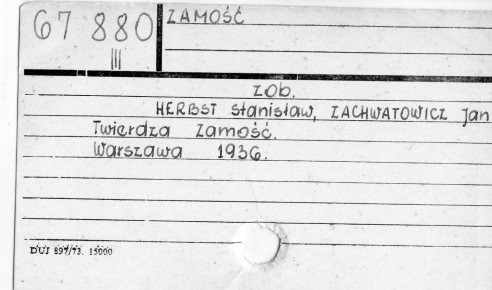 67 880
III
ZAMOŚĆ
zob.
HERBST Stanisław, ZACHWATOWICZ Jan
Twierdza Zamość.
Warszawa 1936.
DUJ 897/73. 15000